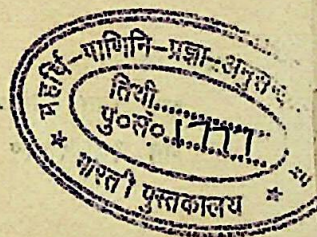 महर्षि-पाणिनि-प्रज्ञा-अनुस
तिथी..........
पु०सं०.1777
भारती पुस्तकालय